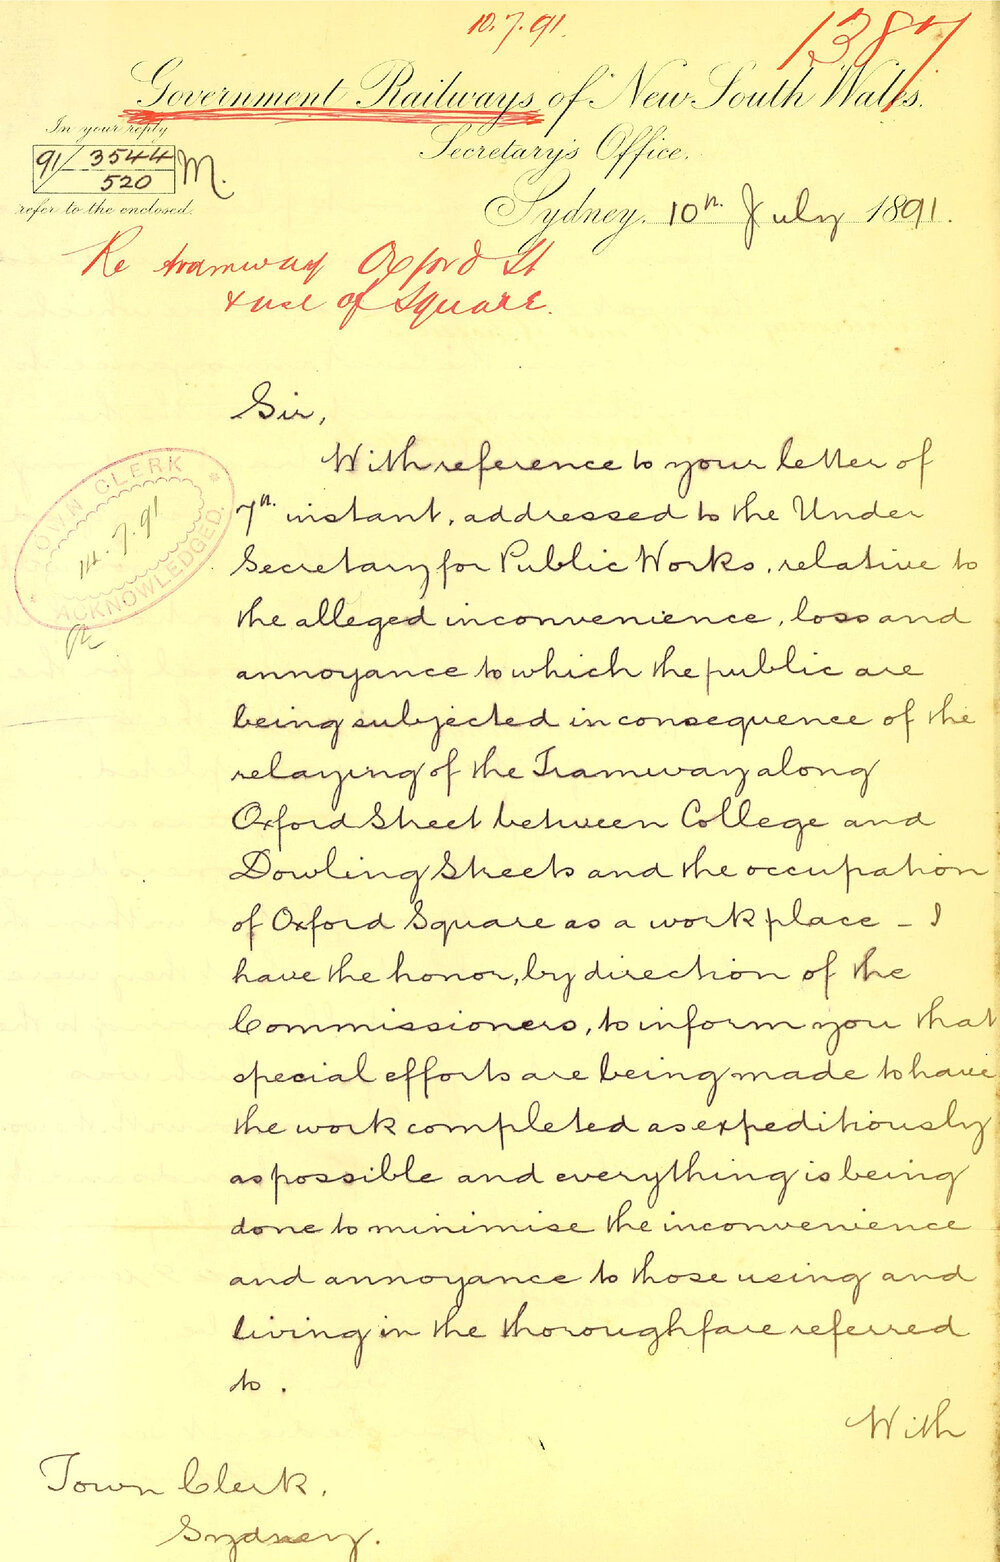 10.7.91.
1387
Government Railways of New South Wales.
Secretary's Office.
In your reply
91/3544 M.
520
refer to the enclosed.
Sydney, 10th. July 1891.
Re tramway Oxford St
& use of Square.
Sir,
With reference to your letter of
7th. instant, addressed to the Under
Secretary for Public Works, relative to
the alleged inconvenience, loss and
annoyance to which the public are
being subjected in consequence of the
relaying of the Tramway along
Oxford Street between College and
Dowling Streets and the occupation
of Oxford Square as a work place – I
have the honor, by direction of the
Commissioners, to inform you that
special efforts are being made to have
the work completed as expeditiously
as possible and everything is being
done to minimise the inconvenience
and annoyance to those using and
living in the thoroughfare referred
to.
With
TOWN CLERK
14.7.91
ACKNOWLEDGED.
Town Clerk.
Sydney.